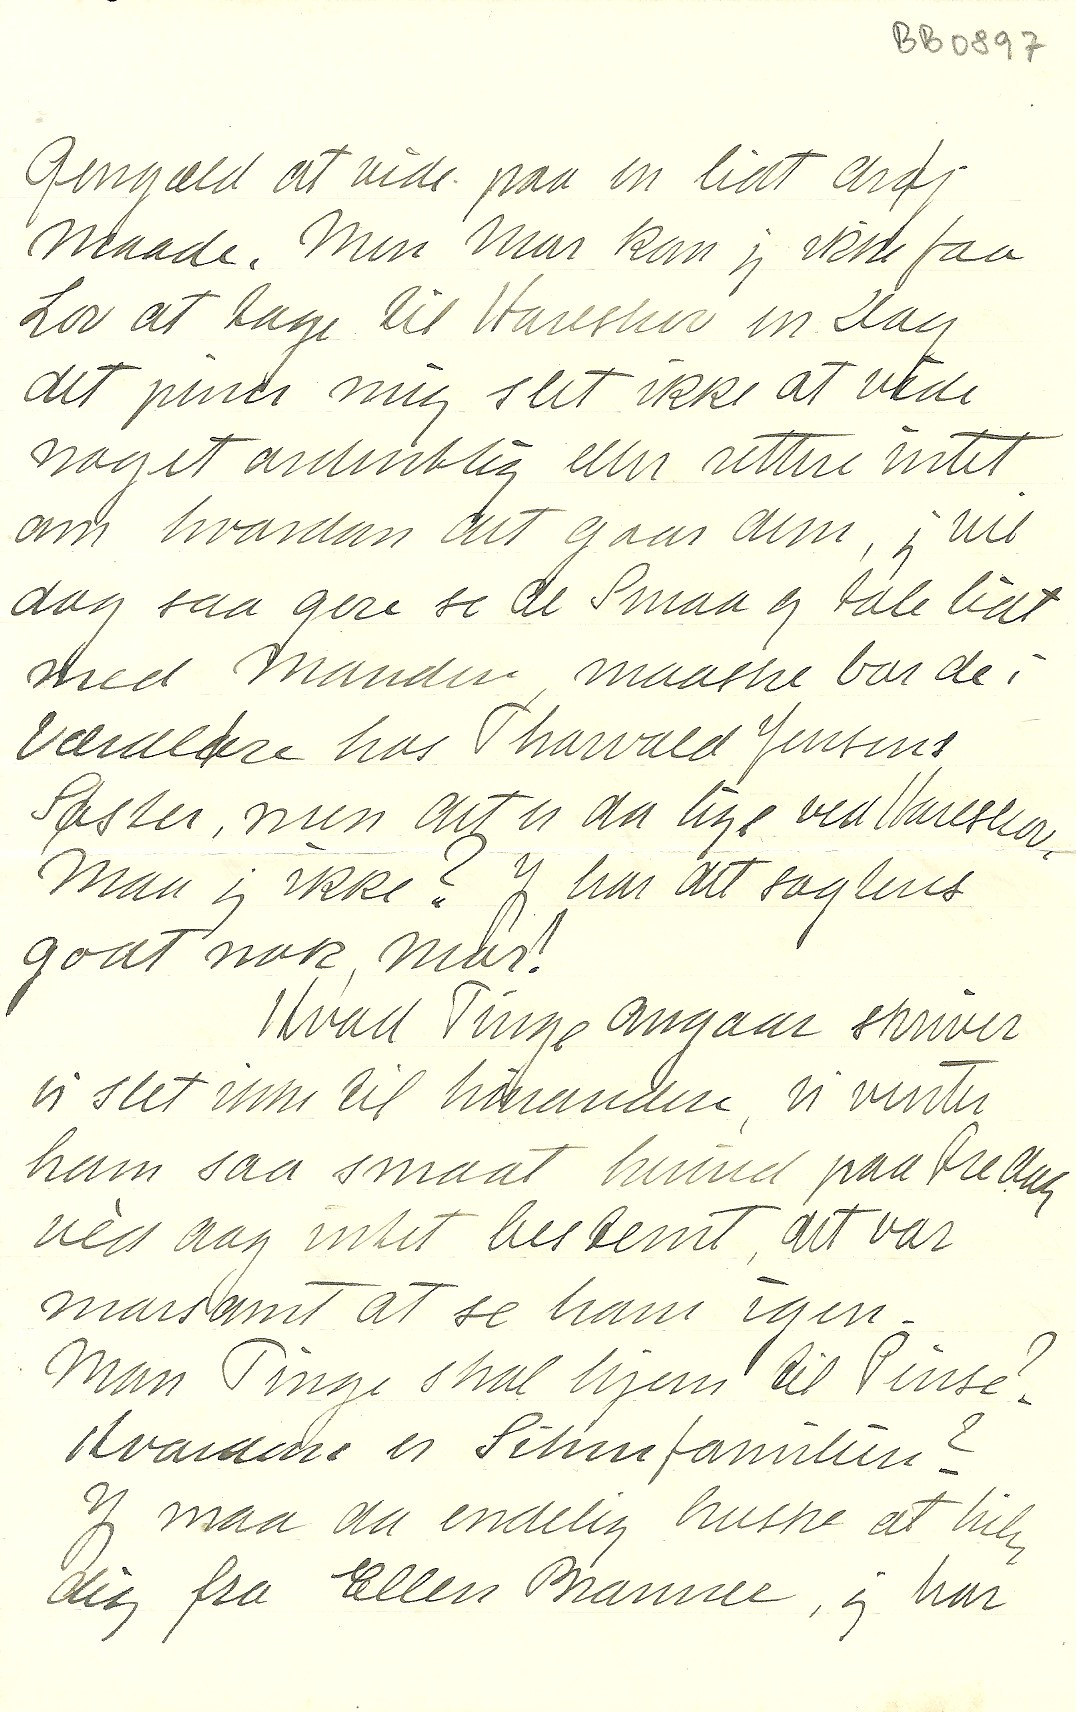 BB0897
Gengæld at vide paa en lidt drøj
Maade. Men Mor kan jeg ikke faa
Lov at tage til Hareskov en Dag
det piner mig slet ikke at vide
noget ordentlig eller rettere intet
om hvordan det gaar dem, jeg vil
dog saa gerne se de Smaa og tale lidt
med Manden, maaske bor de i
Værelse hos Thorvald Jensens
Søster, men det er da lige ved Hareskov.
Maa jeg ikke? Jeg har det sagtens
godt nok, Mor!
Hvad Tinge angaar skriver
vi slet ikke til hinanden, vi venter
ham saa smaat herind paa Fredag
ved dog intet bestemt, det var
morsomt at se ham igen.
Mon Tinge skal hjem til Pinse?
Hvordan er familien?
Jeg maa da endelig huske at hilse
dig fra Ellen, jeg har